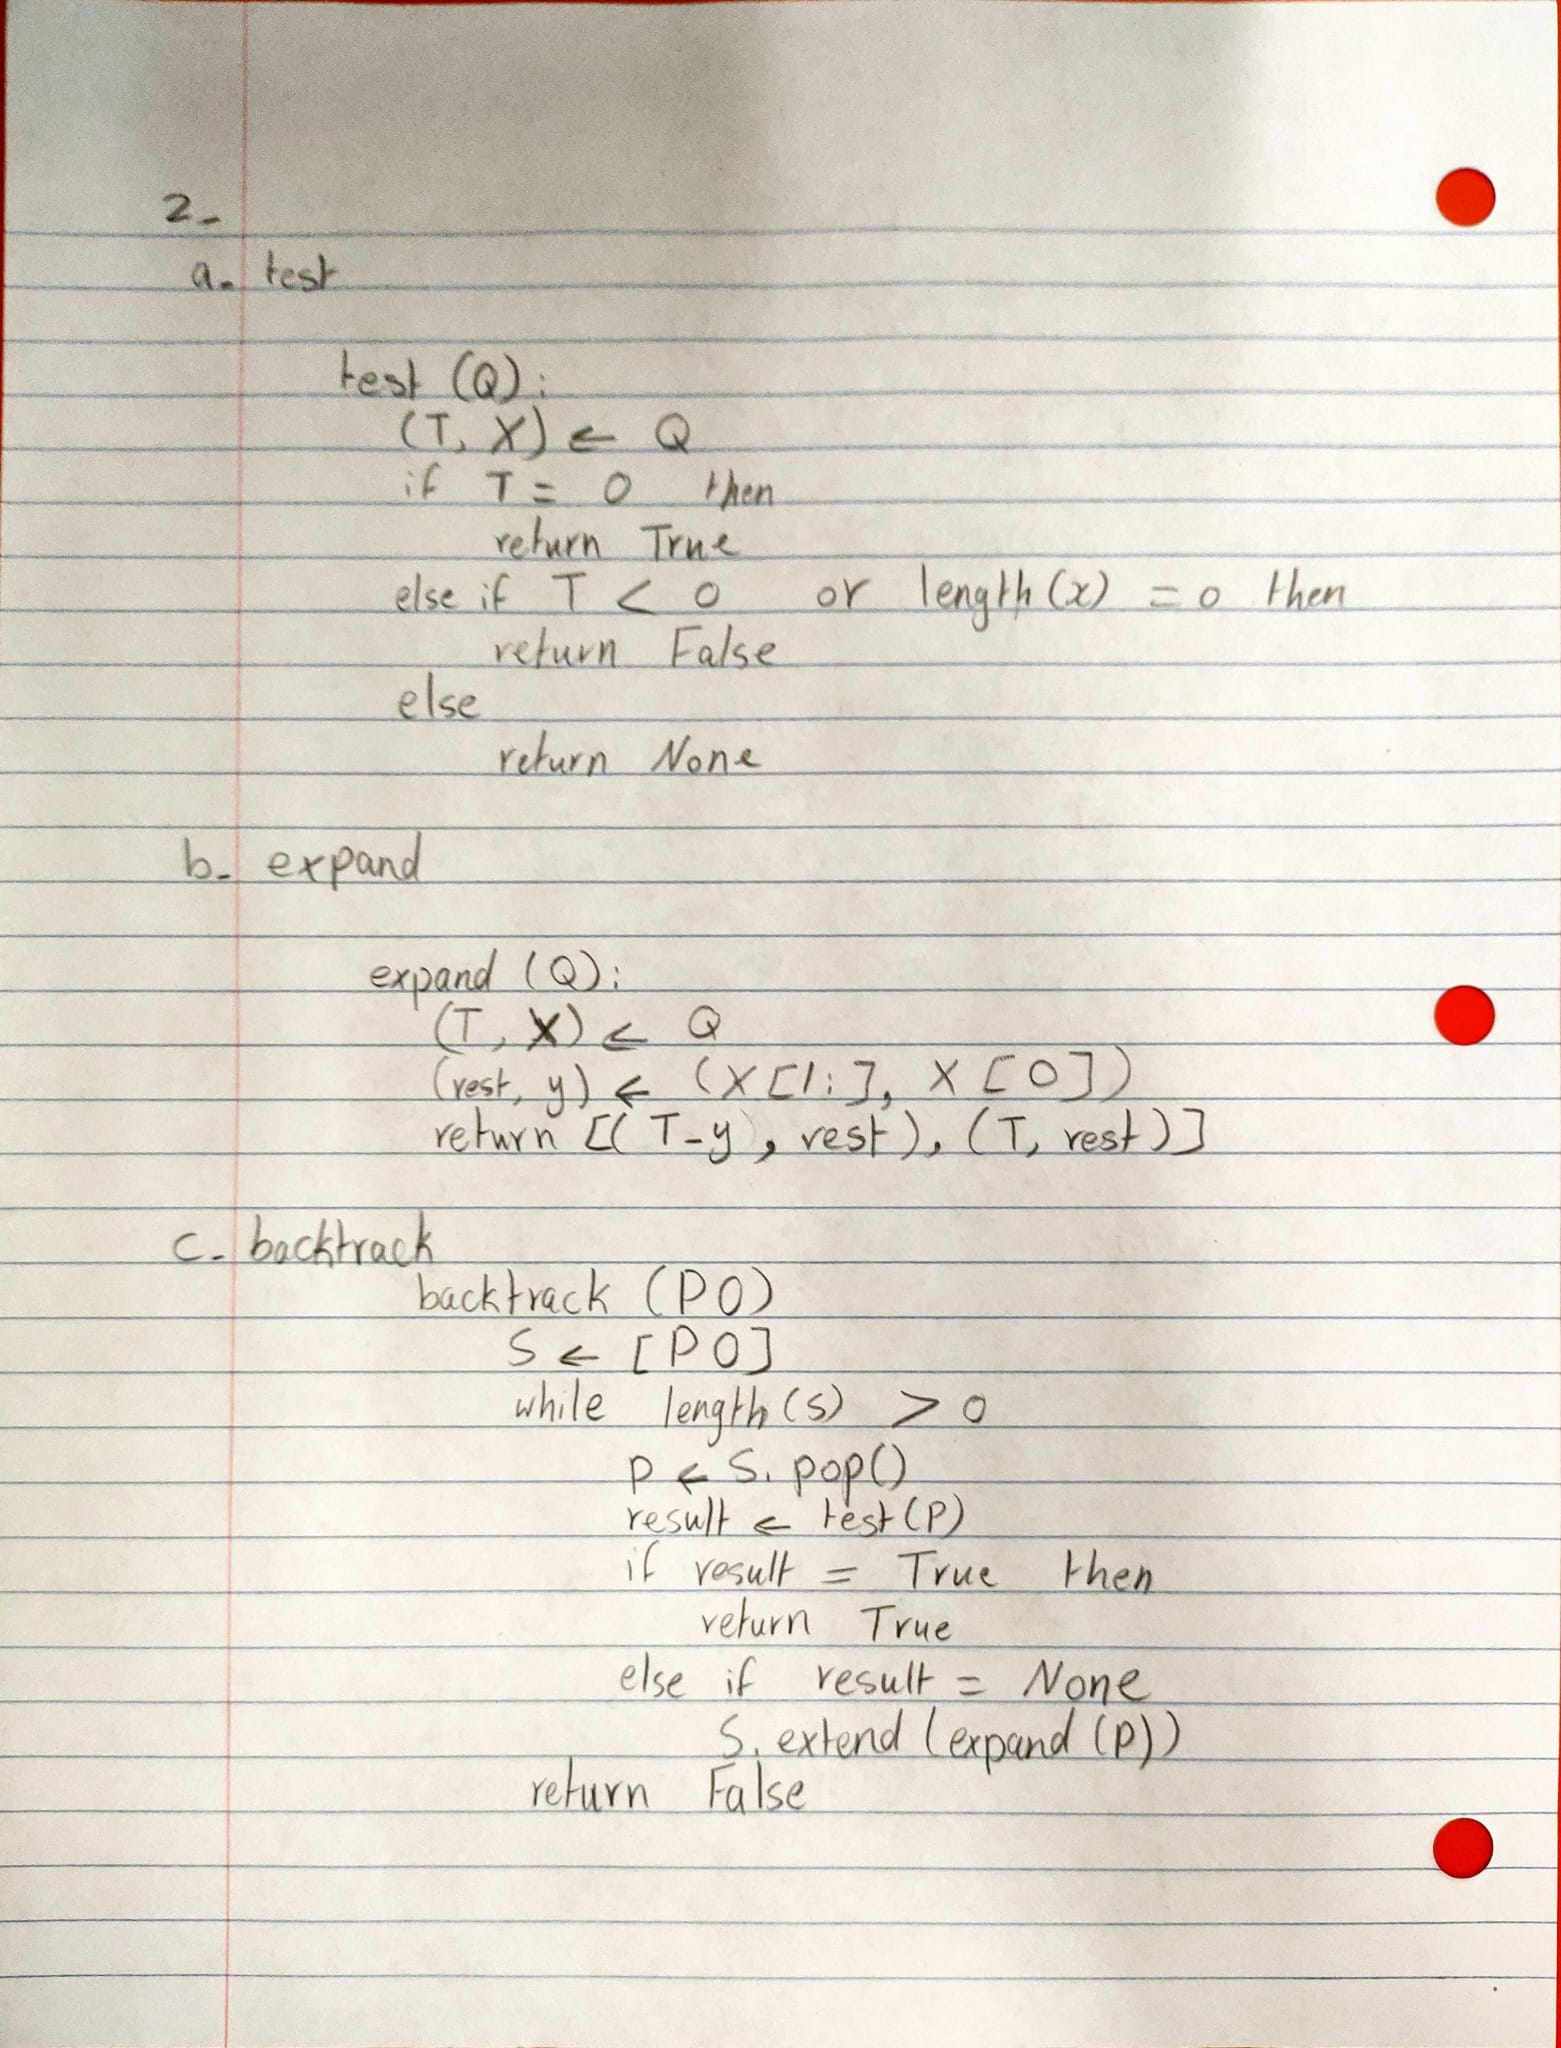 2-
a. test
test (Q):
(T, X) ← Q
if T = 0 then
return True
else if T < 0 or length (x) = 0 then
return False
else
return None
b. expand
expand (Q):
(T, X) ← Q
(rest, y) ← (X [1:], X [0])
return [( T-y , rest), (T, rest)]
c. backtrack
backtrack (P0)
S ← [P0]
while length (s) > 0
P ← S. pop()
result ← test (P)
if result = True then
return True
else if result = None
S. extend (expand (P))
return False